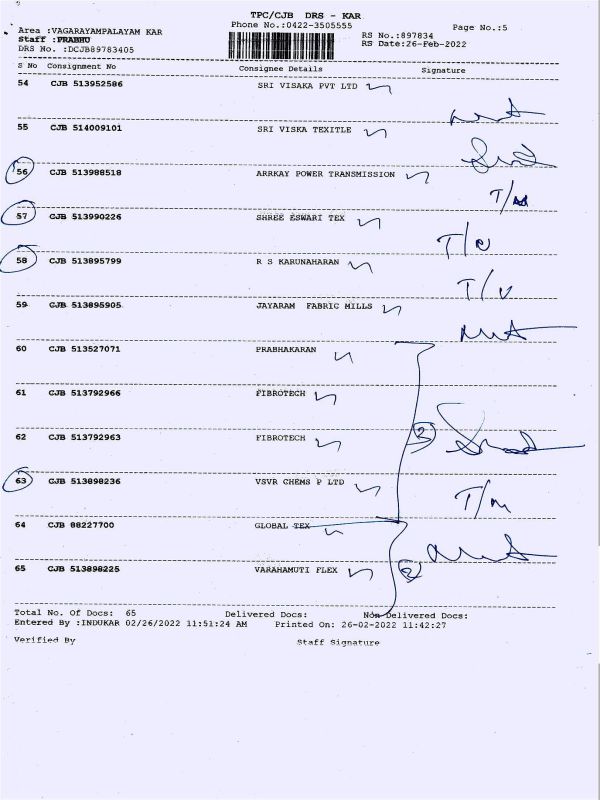 TPC/CJB DRS - KAR
Area :VAGARAYAMPALAYAM KAR Phone No.:0422-3505555 Page No.:5
Staff :PRABHU RS No.:897834
DRS No. :DCJB89783405 RS Date:26-Feb-2022
S No Consignment No Consignee Details Signature
54 CJB 513952586 SRI VISAKA PVT LTD
55 CJB 514009101 SRI VISKA TEXITLE
56 CJB 513988518 ARRKAY POWER TRANSMISSION
57 CJB 513990226 SHREE ESWARI TEX
58 CJB 513895799 R S KARUNAHARAN
59 CJB 513895905 JAYARAM FABRIC MILLS
60 CJB 513527071 PRABHAKARAN
61 CJB 513792966 FIBROTECH
62 CJB 513792963 FIBROTECH
63 CJB 513898236 VSVR CHEMS P LTD
64 CJB 88227700 GLOBAL TEX
65 CJB 513898225 VARAHAMUTI FLEX
Total No. Of Docs: 65 Delivered Docs: Non Delivered Docs:
Entered By :INDUKAR 02/26/2022 11:51:24 AM Printed On: 26-02-2022 11:42:27
Verified By Staff Signature